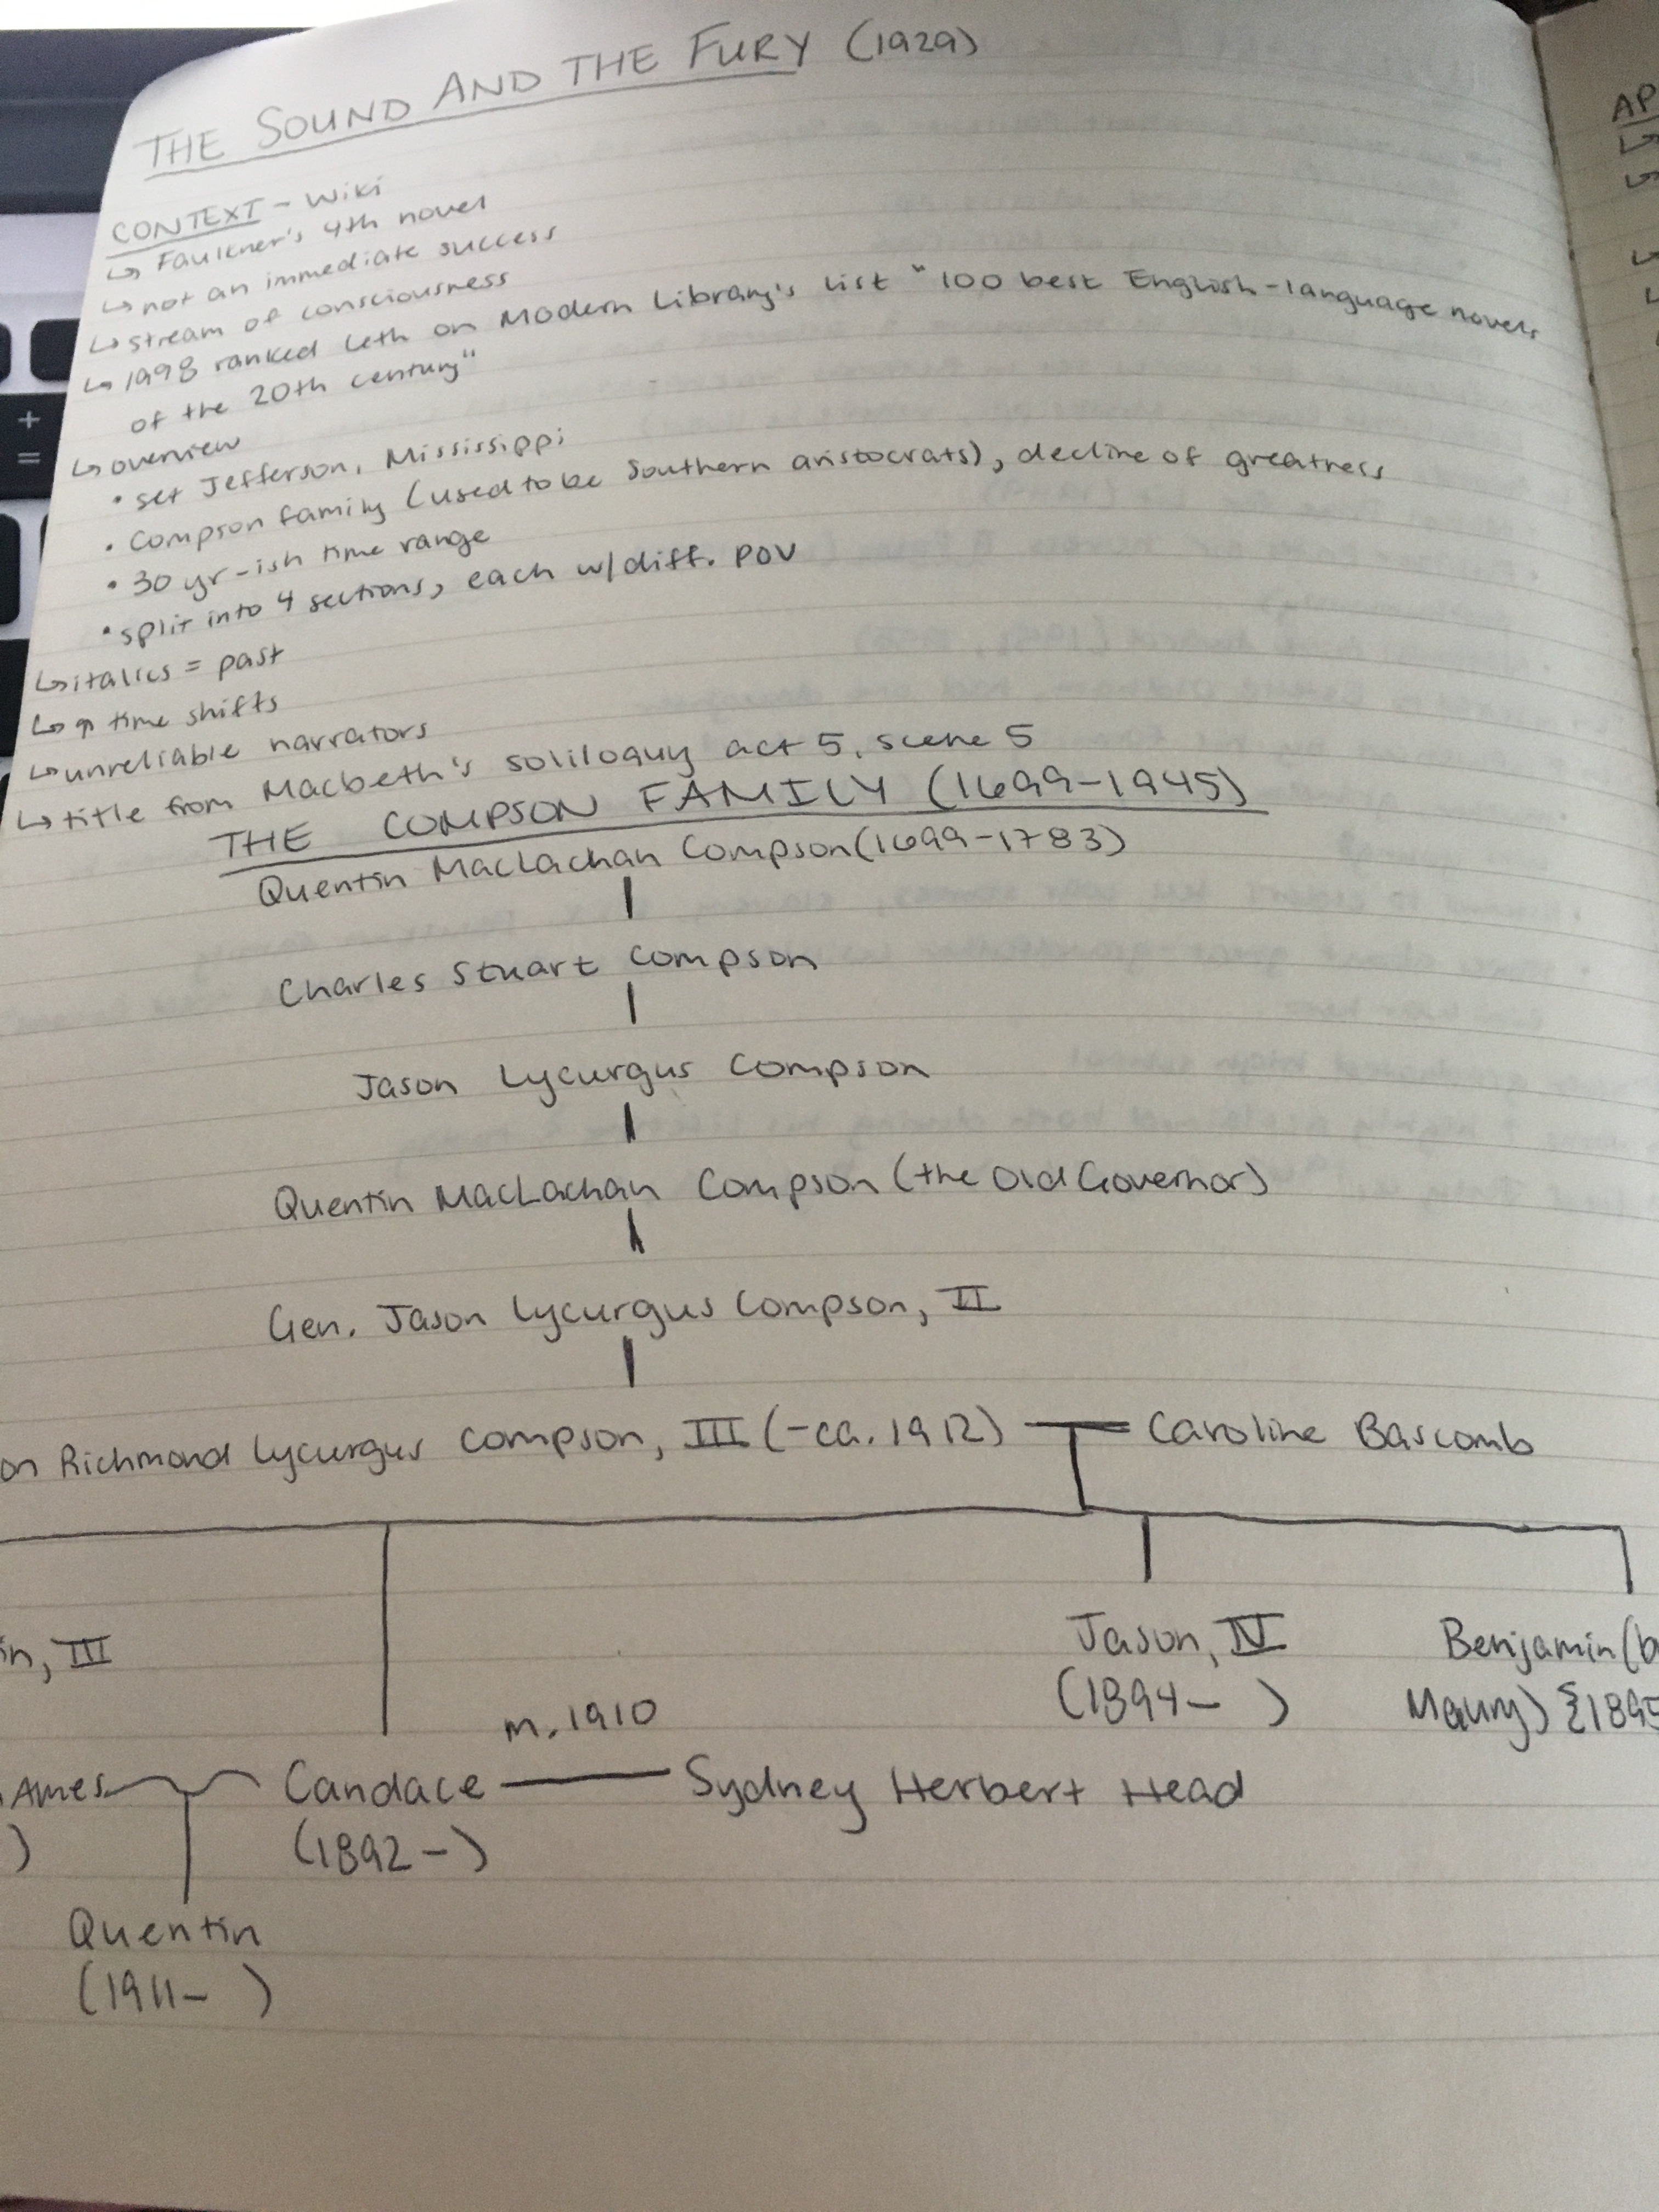 THE SOUND AND THE FURY (1929)
CONTEXT - Wiki
↳ Faulkner's 4th novel
↳ not an immediate success
↳ stream of consciousness
↳ 1998 ranked 6th on Modern Library's list "100 best English-language novels
of the 20th century"
↳ overview
• set Jefferson, Mississippi
• Compson family (used to be Southern aristocrats), decline of greatness
• 30 yr-ish time range
• split into 4 sections, each w/ diff. POV
↳ italics = past
↳ time shifts
↳ unreliable narrators
↳ title from Macbeth's soliloquy act 5, scene 5
THE COMPSON FAMILY (1699-1945)
Quentin MacLachan Compson (1699-1783)
Charles Stuart Compson
Jason Lycurgus Compson
Quentin MacLachan Compson (the Old Governor)
Gen. Jason Lycurgus Compson, II
on Richmond Lycurgus Compson, III (-ca. 1912) Caroline Bascomb
in, III Jason, IV Benjamin (b
(1894- ) Maury) {1895
m. 1910
Ames Candace Sydney Herbert Head
) (1892-)
Quentin
(1911- )
AP
+
=